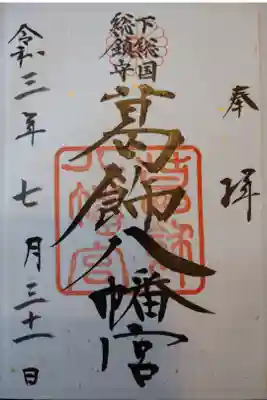 奉拝
下総国
総鎮守
葛飾八幡宮
葛飾
八幡宮
令和三年七月三十一日